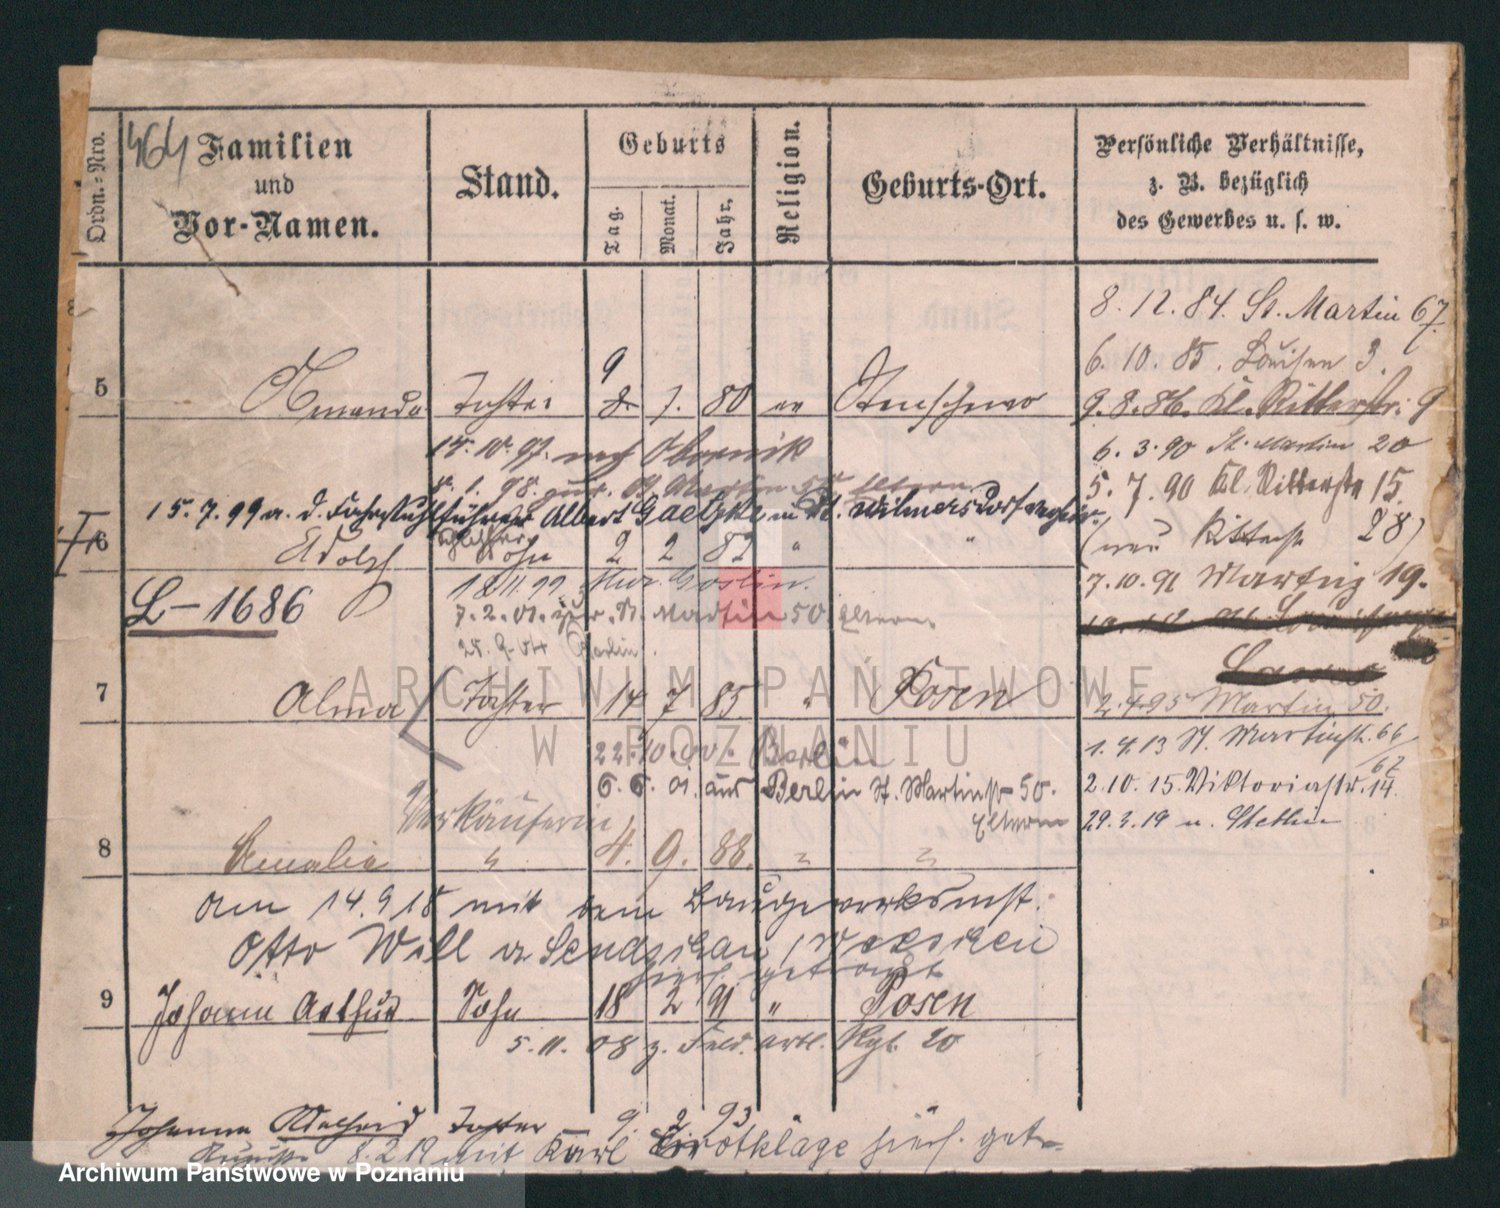 464
Ordn.-Nro.
Familien
und
Vor-Namen.
Stand.
Geburts
Tag.
Monat.
Jahr.
Religion.
Geburts-Ort.
Persönliche Verhältnisse,
z. B. bezüglich
des Gewerbes u. s. w.
8. 12. 84. St. Martin 67.
6. 10. 85. Louisen 3.
9
5 Amanda Tochter 8 7. 80 ev Stenschewo
9. 8. 86. Kl. Ritterstr. 9
14. 10. 97. nach Obornik
6. 3. 90 St. Martin 20
1. 98. zur. St. Martin 50 Eltern
5. 7. 90 Kl. Ritterstr 15.
15. 7. 99 a. d. Fahrstuhlführer Albert Gaetzke in Dt. Wilmersdorf
(neu Ritterstr 28)
6 Adolf Sohn 2 2 82 " "
7. 10. 91 Martin 19.
L-1686
18 11. 99 Mur. Goslin.
7. 2. 01. zur. St. Martin 50 Eltern.
25. 9. 04 Berlin.
7 Alma Tochter 14 7 85 " Posen
2. 4. 95 Martin 50.
22. 10. 00. Berlin
1. 4. 13 St. Martinstr. 66/67
6. 6. 01. aus Berlin St. Martinstr 50.
Eltern
2. 10. 15. Viktoriastr. 14.
29. 3. 19 n. Stettin
Verkäuferin
8 Amalie " 4. 9. 88. " "
am 14. 9 18 mit dem Baugewerksmst.
Otto Will a Sendzikau, Wreschen
hier getraut
9 Johann Arthur Sohn 18 2 91 " Posen
5. 11. 08 z. Feld. artl. Rgt. 20
Johanna Adelheid Tochter 9. 2 93
8. 2 19 mit Karl Brotklage hier. getr.
ARCHIWUM PAŃSTWOWE
W POZNANIU
Archiwum Państwowe w Poznaniu